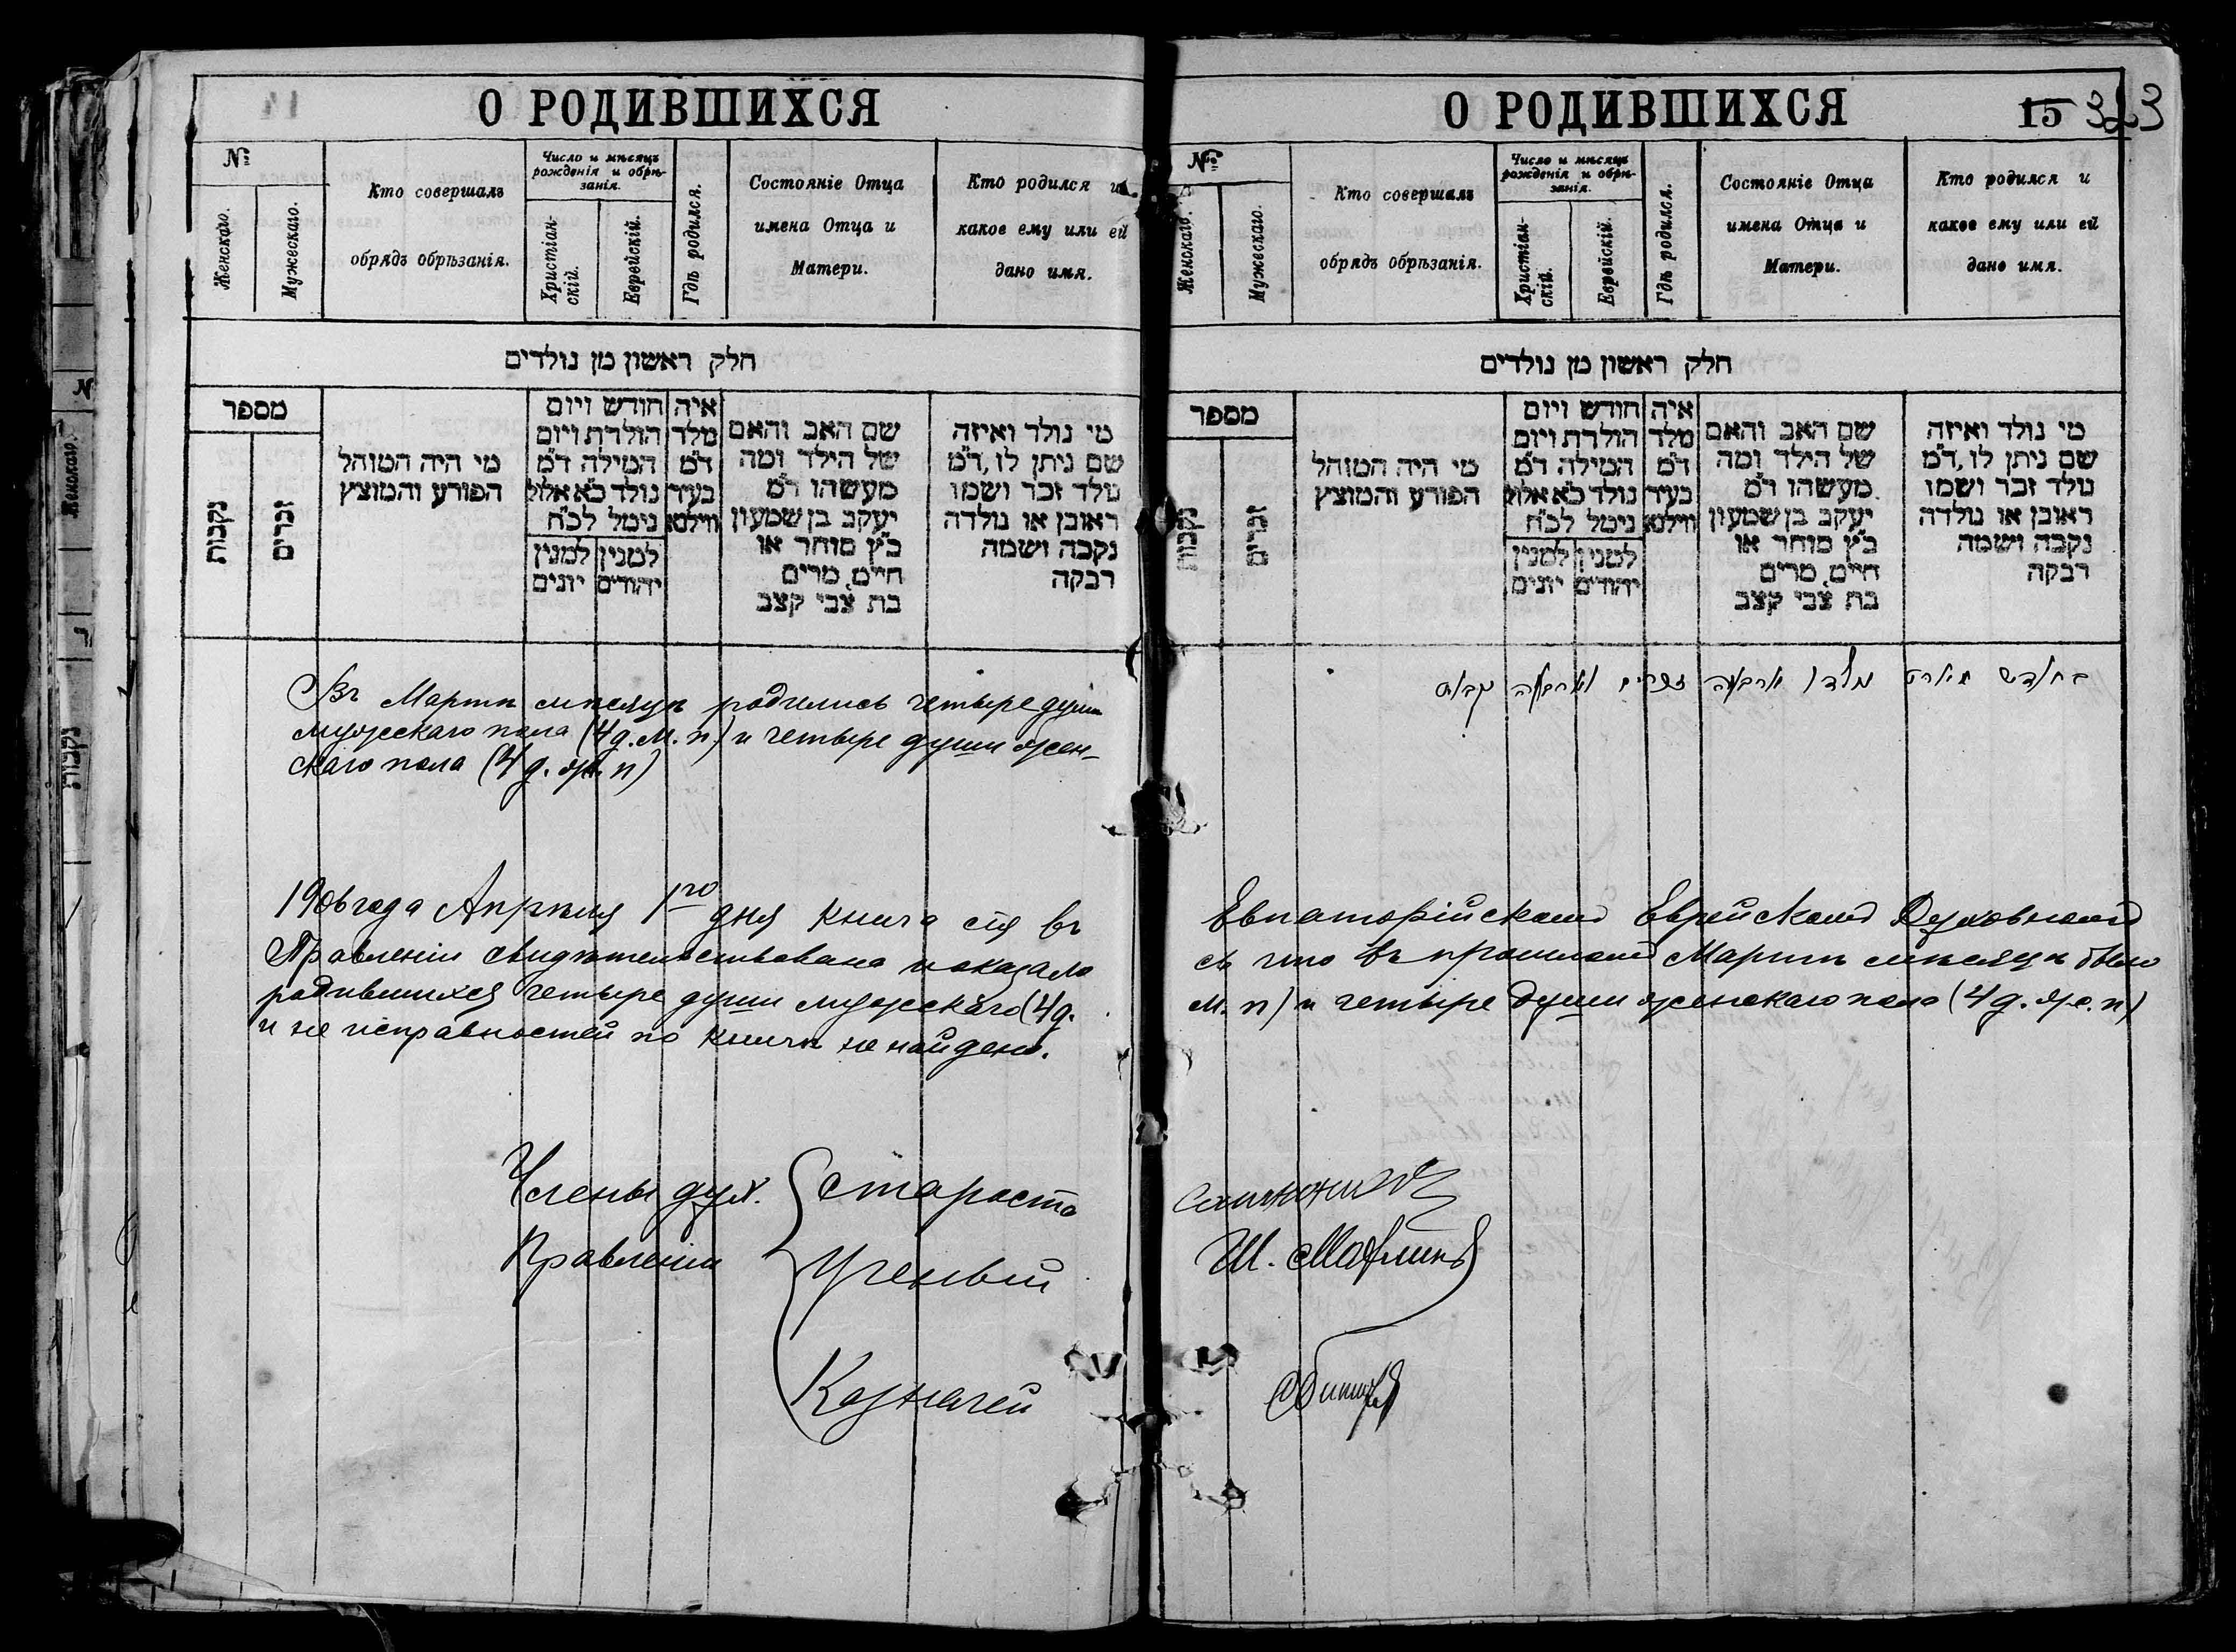 О РОДИВШИХСЯ
№
Женскаго.
Мужескаго.
Кто совершалъ
обрядъ обрѣзанія.
Число и мѣсяцъ
рожденія и обрѣ-
занія.
Христіан-
скій.
Еврейскій.
Гдѣ родился.
Состояніе Отца
имена Отца и
Матери.
Кто родился и
какое ему или ей
дано имя.
חלק ראשון מן נולדים
מספר
נקבות
זכרים
מי היה המוהל
הפורע והמוצץ
חודש ויום
הולדת ויום
המילה ד"מ
נולד כ"א אלול
נימל לכ"ח
למנין יהודים
למנין יונים
איה
מלד
ד"מ
בעיר
ווילנא
שם האב והאם
של הילד ומה
מעשהו ד"מ
יעקב בן שמעון
כ"ץ סוחר או
חייט, מרים
בת צבי קצב
מי נולד ואיזה
שם ניתן לו, ד"מ
נולד זכר ושמו
ראובן או נולדה
נקבה ושמה
רבקה
Въ Мартѣ мѣсяцѣ родились четыре души
мужескаго пола (4 д. м. п.) и четыре души жен-
скаго пола (4 д. ж. п)
1906 года Апрѣля 1го дня книга сія въ
Правленіи свидѣтельствована и оказало
родившихся четыре души мужескаго (4 д.
и не исправностей по книгѣ не найдено.
Члены дух.
Правленія
Староста
Ученый
Казначей
О РОДИВШИХСЯ
15 323
№
Женскаго.
Мужескаго.
Кто совершалъ
обрядъ обрѣзанія.
Число и мѣсяцъ
рожденія и обрѣ-
занія.
Христіан-
скій.
Еврейскій.
Гдѣ родился.
Состояніе Отца
имена Отца и
Матери.
Кто родился и
какое ему или ей
дано имя.
חלק ראשון מן נולדים
מספר
נקבות
זכרים
מי היה המוהל
הפורע והמוצץ
חודש ויום
הולדת ויום
המילה ד"מ
נולד כ"א אלול
נימל לכ"ח
למנין יהודים
למנין יונים
איה
מלד
ד"מ
בעיר
ווילנא
שם האב והאם
של הילד ומה
מעשהו ד"מ
יעקב בן שמעון
כ"ץ סוחר או
חייט, מרים
בת צבי קצב
מי נולד ואיזה
שם ניתן לו, ד"מ
נולד זכר ושמו
ראובן או נולדה
נקבה ושמה
רבקה
בחודש מארט נולדו ארבעה זכרים וארבעה נקבות
Евпаторійскомъ Еврейскомъ Духовномъ
съ что въ прошломъ Мартѣ мѣсяцѣ было
м. п) и четыре души женскаго пола (4 д. ж. п)
Ш.